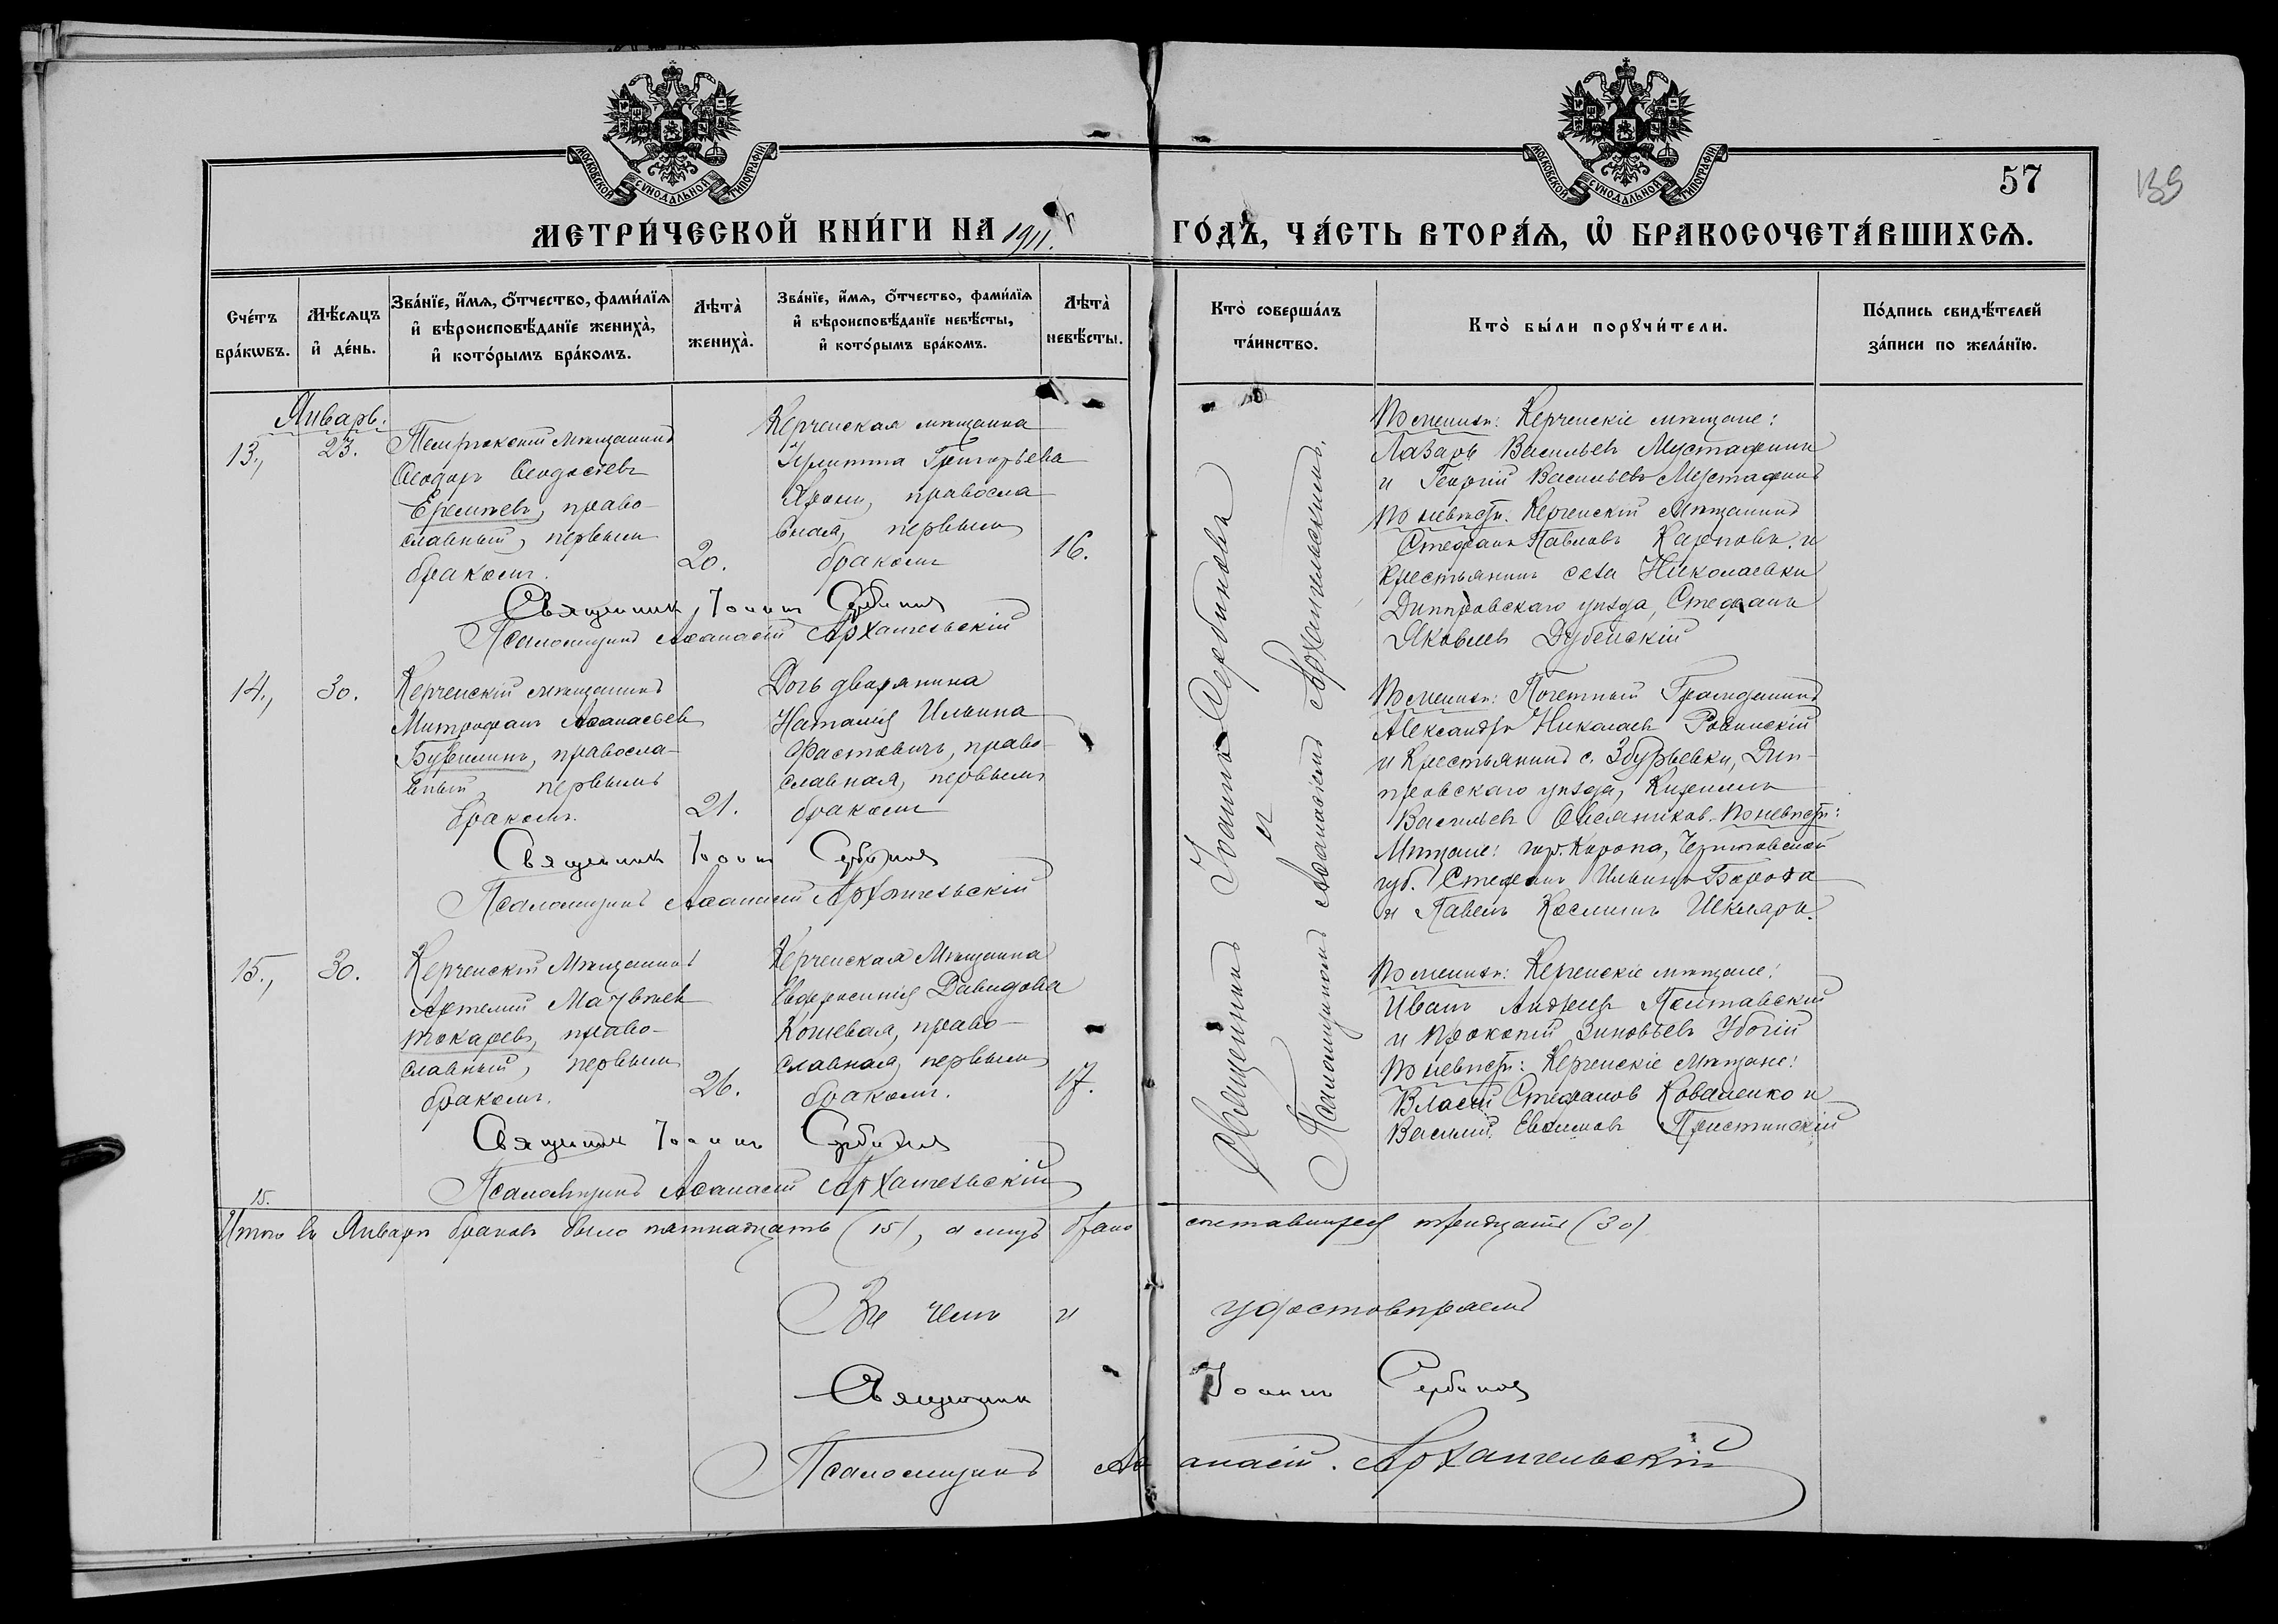 МОСКОВСКОЙ СѴНОДАЛЬНОЙ ТИПОГРАФІИ
МОСКОВСКОЙ СѴНОДАЛЬНОЙ ТИПОГРАФІИ
57
139
МЕТРИ́ЧЕСКОЙ КНИ́ГИ НА 1911.
ГО́ДЪ, ЧА́СТЬ ВТОРА́Ѧ, Ѽ БРАКОСОЧЕТА́ВШИХСѦ.
Сче́тъ бра́кѡвъ.
Мѣ́сѧцъ и҆ де́нь.
Зва́нїе, и҆́мѧ, ѻ҆́тчество, фами́лїѧ
и҆ вѣроисповѣ́данїе жениха̀,
и҆ кото́рымъ бра́комъ.
Лѣта̀ жениха̀.
Зва́нїе, и҆́мѧ, ѻ҆́тчество, фами́лїѧ
и҆ вѣроисповѣ́данїе невѣ́сты,
и҆ кото́рымъ бра́комъ.
Лѣта̀ невѣ́сты.
Кто̀ соверша́лъ та́инство.
Кто̀ бы́ли порꙋчи́тели.
По́дпись свидѣ́телей
за́писи по жела́нїю.
Январь.
13., 23.
Темрюкскій мѣщанинъ
Ѳеодоръ Ѳеодосіевъ
Еремѣевъ, право-
славный, первымъ
бракомъ.
20.
Керченская мѣщанка
Григорьева
правосла
вная, первымъ
бракомъ
16.
Священникъ Іоаннъ Сербиновъ
Псаломщикъ Аѳанасій Архангельскій
По женихѣ: Керченскіе мѣщане:
Лазарь Васильевъ Мустафинъ
и Георгій Васильевъ Мустафинъ
По невѣстѣ. Керченскій мѣщанинъ
Стефанъ Павловъ Карповъ и
Крестьянинъ села Николаевки
Днѣпровскаго уѣзда, Стефанъ
Яковлевъ Дубенскій
14., 30.
Керченскій мѣщанинъ
Митрофанъ Аѳанасьевъ
правосла-
вный, первымъ
бракомъ.
21.
Дочь дворянина
Наталія Ильина
Фастовичъ, право-
славная, первымъ
бракомъ
Священникъ Іоаннъ Сербиновъ
Псаломщикъ Аѳанасій Архангельскій
По женихѣ: Почетный Гражданинъ
Александръ Николаевъ Ровинскій
и Крестьянинъ с. Збурьевки, Днѣ-
провскаго уѣзда,
Васильевъ Овсяниковъ. По невѣстѣ:
Мѣщане: гор. Коропа, Черниговской
губ. Стефанъ Ильинъ Борода
и Павелъ Косминъ Шкляръ.
15., 30.
Керченскій Мѣщанинъ
Артемій Матвѣевъ
Токаревъ, право-
славный, первымъ
бракомъ.
26.
Керченская Мѣщанка
Евфросинія Давидова
Кошевая, право-
славная, первымъ
бракомъ.
17.
Священникъ Іоаннъ Сербиновъ
Псаломщикъ Аѳанасій Архангельскій
По женихѣ: Керченскіе мѣщане:
Иванъ Андреевъ Полтавскій
и Прокопій Зиновьевъ Убогій
По невѣстѣ: Керченскіе Мѣщане:
Власій Стефановъ Коваленко и
Василій Евфимовъ Пристинскій
Священникъ Іоаннъ Сербиновъ
и
Псаломщикъ Аѳанасій Архангельскій.
15.
Итого въ Январѣ браковъ было пятнадцать (15), а лицъ брако сочетавшихся тридцать (30)
Въ чемъ и удостовѣряемъ
Священникъ Іоаннъ Сербиновъ
Псаломщикъ Аѳанасій. Архангельскій